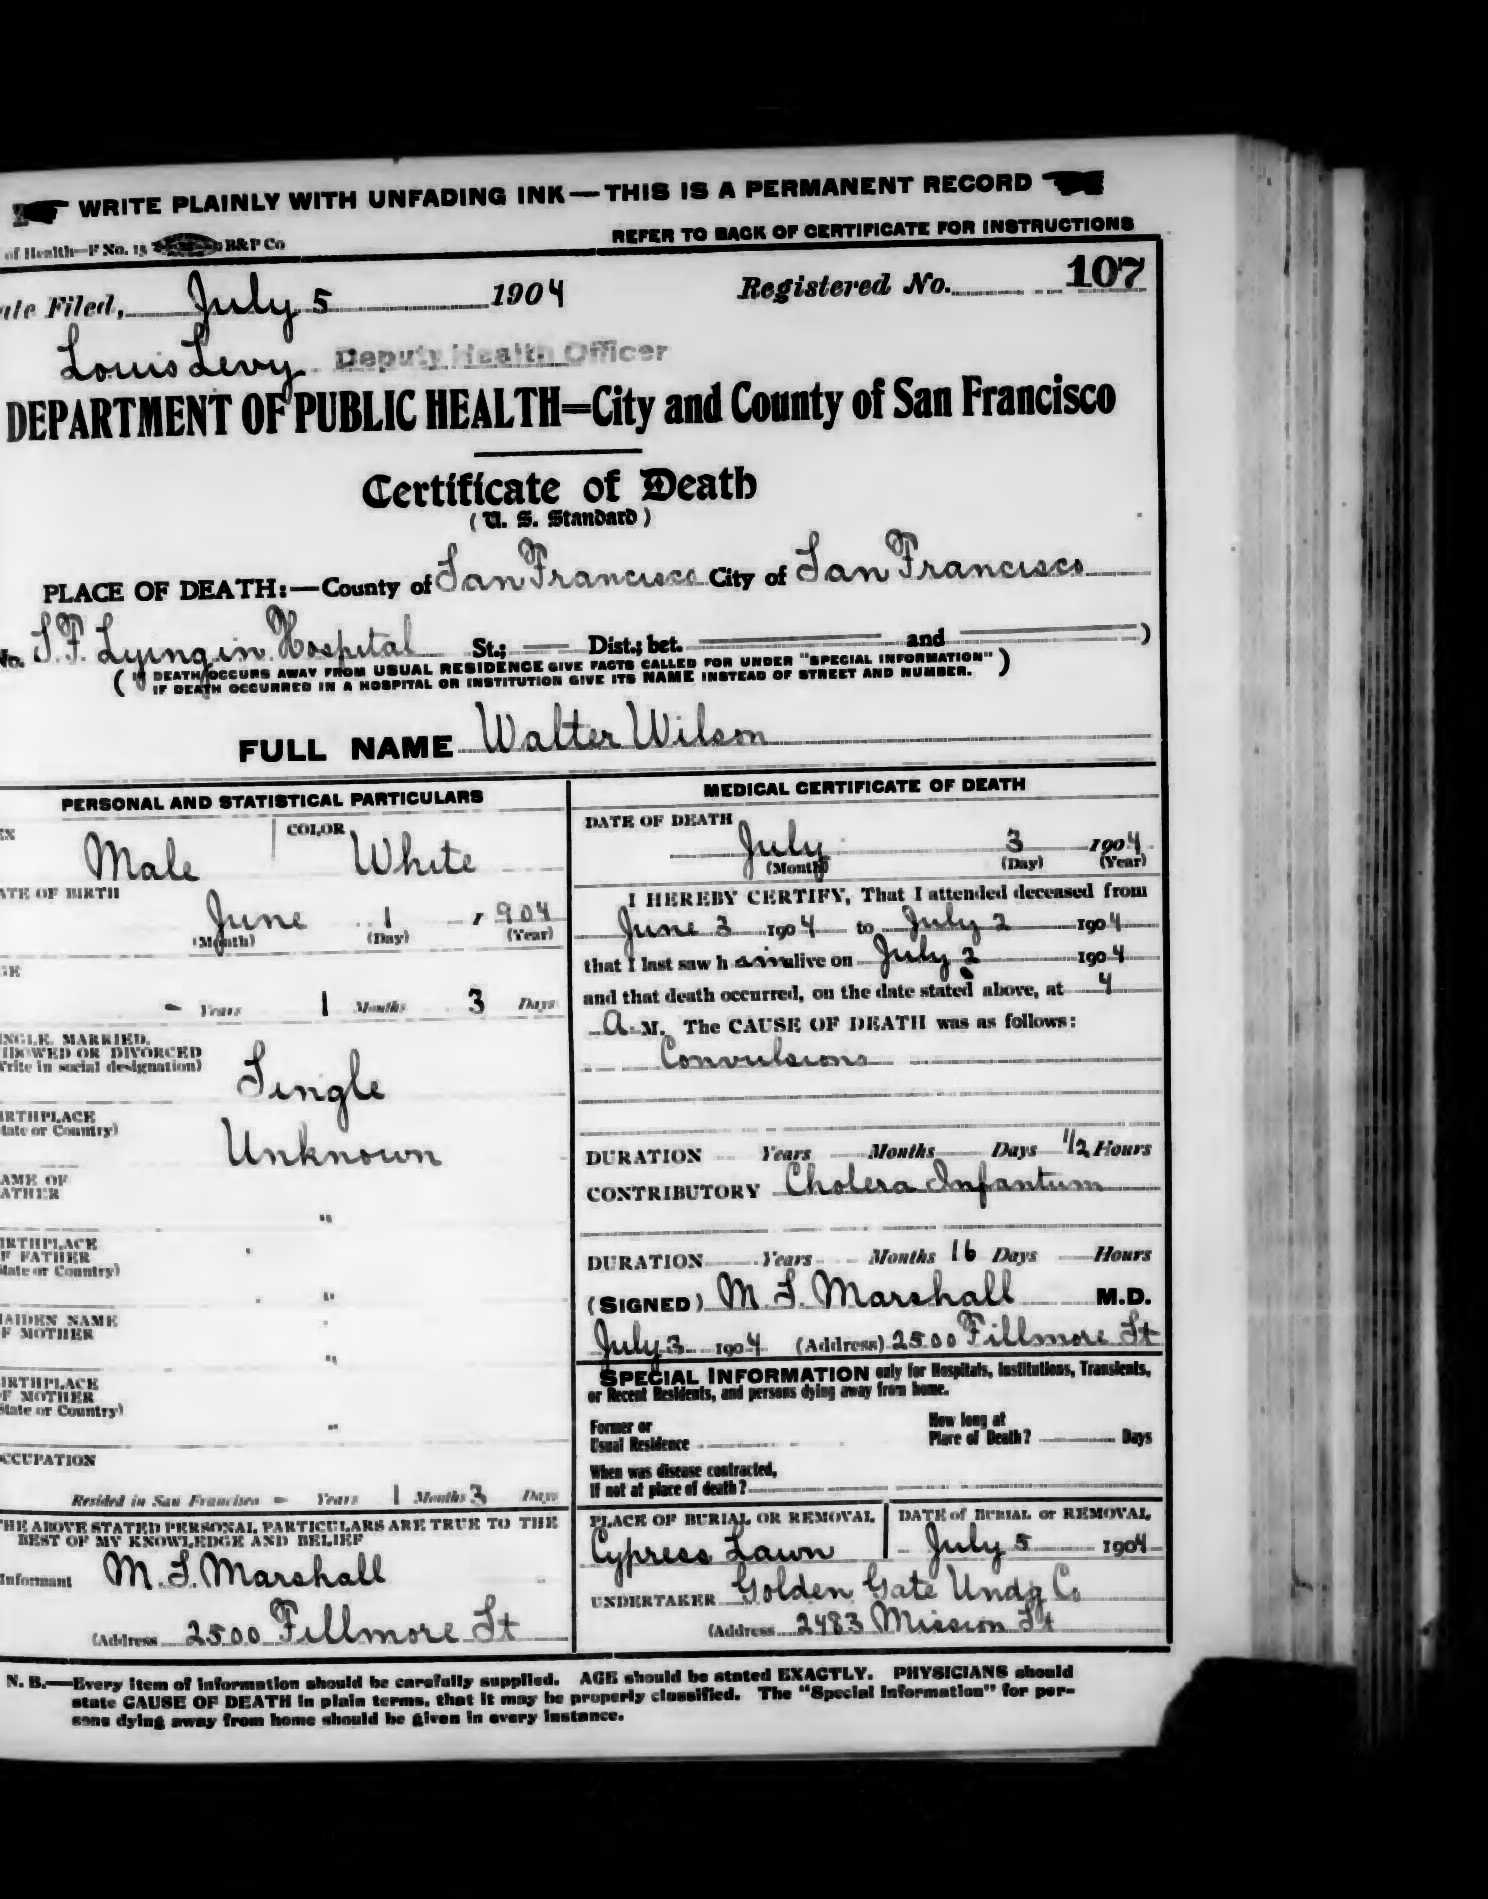 WRITE PLAINLY WITH UNFADING INK—THIS IS A PERMANENT RECORD
of Health—F No. 15 B&P Co
REFER TO BACK OF CERTIFICATE FOR INSTRUCTIONS
ate Filed, July 5 1904 Registered No. 107
Louis Levy Deputy Health Officer
DEPARTMENT OF PUBLIC HEALTH=City and County of San Francisco
Certificate of Death
(U. S. Standard)
PLACE OF DEATH:—County of San Francisco City of San Francisco
No. S.F. Lying in Hospital St.; Dist.; bet. and )
( IF DEATH OCCURS AWAY FROM USUAL RESIDENCE GIVE FACTS CALLED FOR UNDER "SPECIAL INFORMATION" )
IF DEATH OCCURRED IN A HOSPITAL OR INSTITUTION GIVE ITS NAME INSTEAD OF STREET AND NUMBER.
FULL NAME Walter Wilson
PERSONAL AND STATISTICAL PARTICULARS
EX Male COLOR White
ATE OF BIRTH
June 1 1904
(Month) (Day) (Year)
GE
– Years 1 Months 3 Days
INGLE, MARRIED,
IDOWED OR DIVORCED
Write in social designation) Single
IRTHPLACE
tate or Country) Unknown
AME OF
ATHER "
IRTHPLACE
F FATHER
tate or Country) "
AIDEN NAME
F MOTHER "
IRTHPLACE
F MOTHER
tate or Country) "
CCUPATION
Resided in San Francisco – Years 1 Months 3 Days
THE ABOVE STATED PERSONAL PARTICULARS ARE TRUE TO THE
BEST OF MY KNOWLEDGE AND BELIEF
Informant M. S. Marshall
(Address 2500 Fillmore St
MEDICAL CERTIFICATE OF DEATH
DATE OF DEATH
July 3 1904
(Month) (Day) (Year)
I HEREBY CERTIFY, That I attended deceased from
June 3 1904 to July 2 1904
that I last saw him alive on July 2 1904
and that death occurred, on the date stated above, at 4
A. M. The CAUSE OF DEATH was as follows:
Convulsions
DURATION Years Months Days 1/2 Hours
CONTRIBUTORY Cholera Infantum
DURATION Years Months 16 Days Hours
(SIGNED) M. S. Marshall M.D.
July 3 1904 (Address) 2500 Fillmore St
SPECIAL INFORMATION only for Hospitals, Institutions, Transients,
or Recent Residents, and persons dying away from home.
Former or
Usual Residence
How long at
Place of Death? Days
When was disease contracted,
If not at place of death?
PLACE OF BURIAL OR REMOVAL
Cypress Lawn
DATE of BURIAL or REMOVAL
July 5 1904
UNDERTAKER Golden Gate Undg Co
(Address 2483 Mission St
N. B.—Every item of information should be carefully supplied. AGE should be stated EXACTLY. PHYSICIANS should
state CAUSE OF DEATH in plain terms, that it may be properly classified. The "Special Information" for per-
sons dying away from home should be given in every instance.